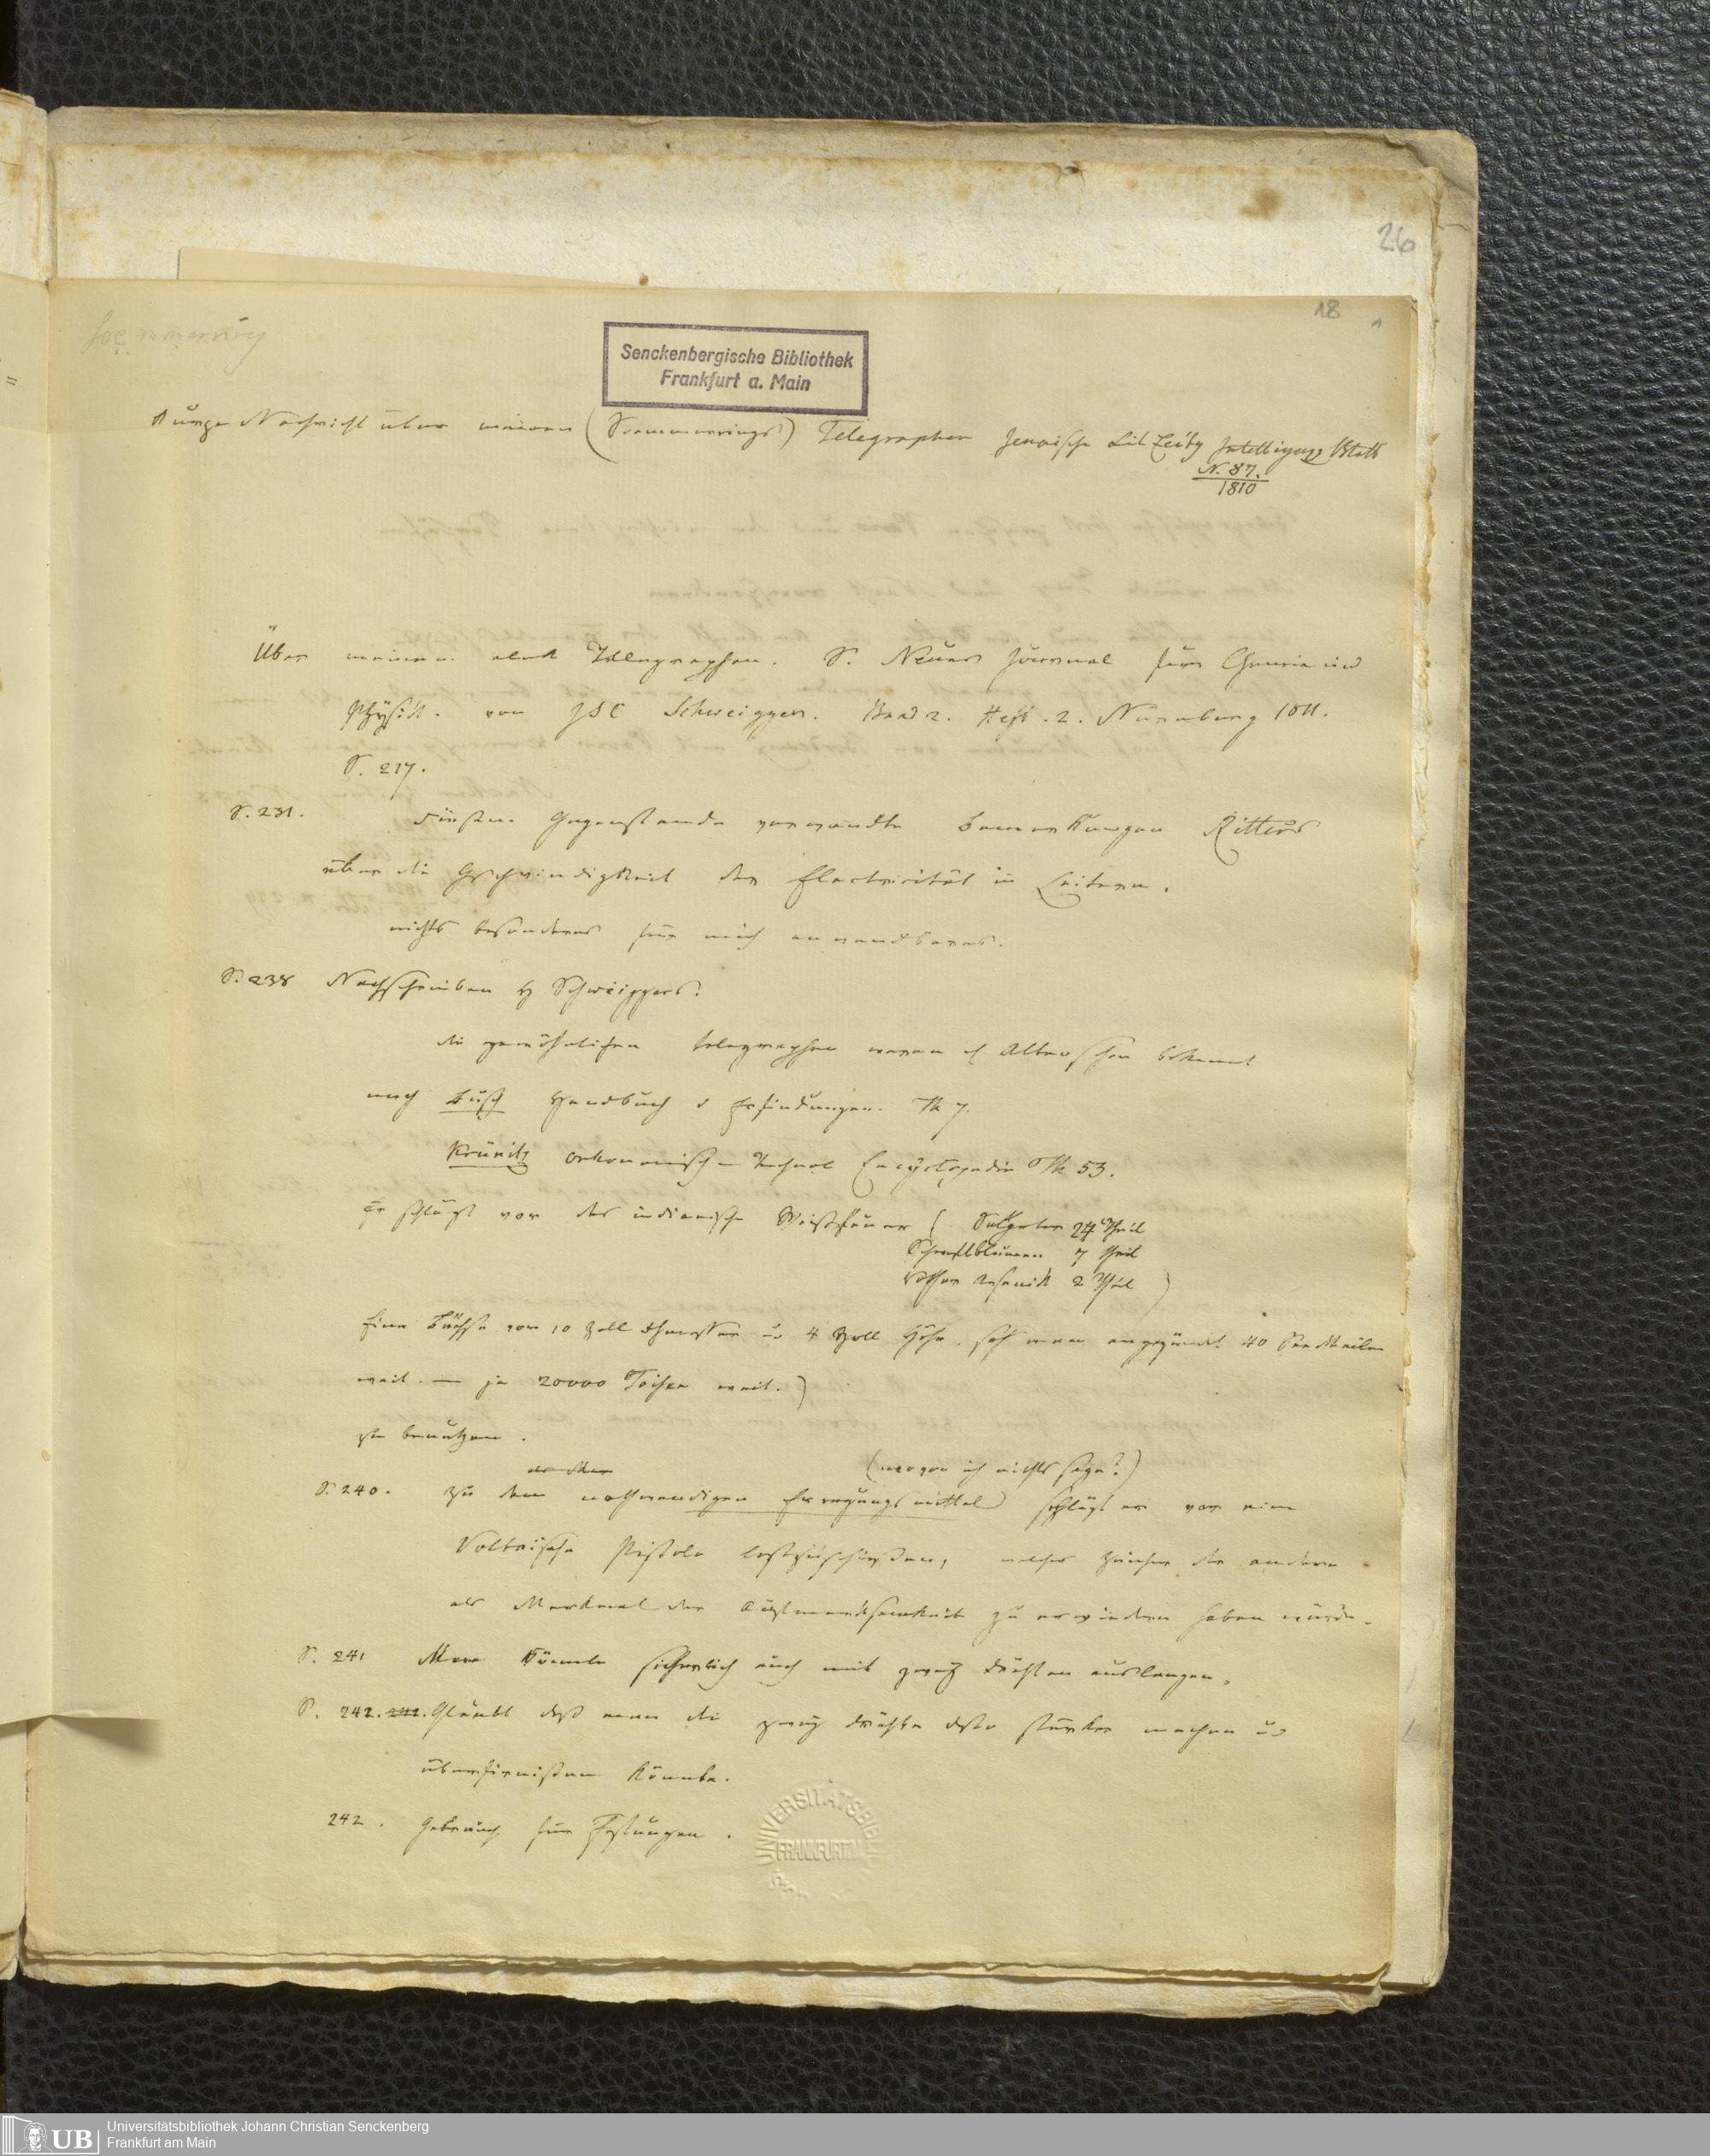 26
18
Soemmering
Senckenbergische Bibliothek
Frankfurt a. Main
Kurze Nachricht über meinen (Soemmerings) Telegraphen Jenaische Lit Zeitg Intelligenz Blatt
N. 87.
1810
Über meinen elect Telegraphen. S. Neues Journal für Chemie und
Physik. von JSC Schweigger. Band 2. Heft. 2. Nürnberg 1811.
S. 217.
S. 231. diesem Gegenstande verwandte Bemerkungen Ritters
über die Geschwindigkeit der Electricität in Leitern.
nichts besonderes für mich anwendbares.
S. 238 Nachschreiben H Schweiggers.
die gewöhnlichen telegraphen waren Alten schon bekannt
nach Busch Handbuch d Erfindungen. Th 7.
Krünitz oekonomisch Technol Encyclopedie Th 53.
Er schlägt vor das indianische Weissfeuer ( Salpeter 24 Theil
Schwefelblumen 7 Theil
rother Arsenik 2 Theil )
Eine Büchse von 10 Zoll Durchmesser u 4 Zoll Höhe. sah man angezündet 40 See Meilen
weit. — ja 20000 Toisen weit.)
zu benutzen.
(wovon ich nichts sage?)
S. 240. zu dem nothwendigen Erregungsmittel schlägt er vor eine
Voltaische Pistole loszuschiessen, welches Zeichen der andere
als Merkmal der Aufmerksamkeit zu erwiedern haben würde.
S. 241 Man könnte sicherlich auch mit zwey Dräthen auslangen.
S. 242. 241. Glaubt dass man die zwey Dräthe desto stärker machen u
überfirnissen könnte.
242. Gebrauch für Festungen.
UNIVERSITÄTSBIBL
FRANKFURT/M
UB
Universitätsbibliothek Johann Christian Senckenberg
Frankfurt am Main